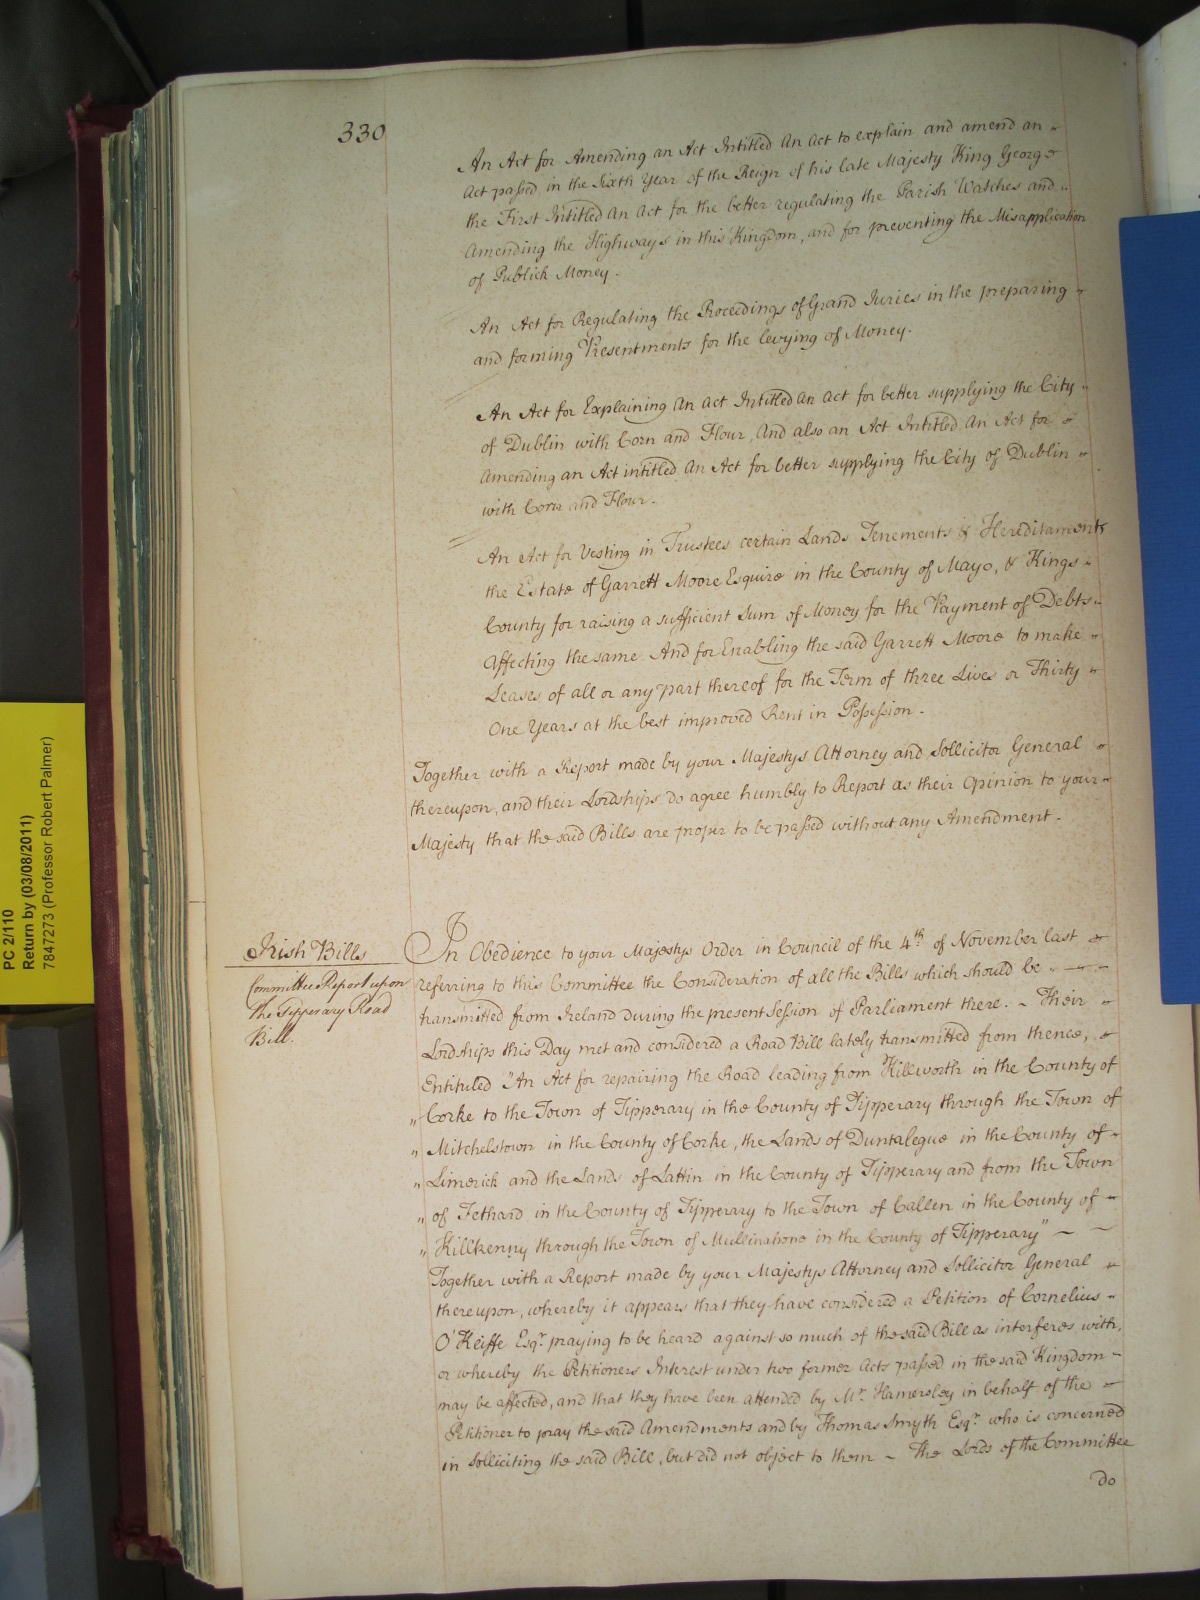 330
An Act for Amending an Act Intitled An Act to explain and amend an
Act passed in the Sixth Year of the Reign of his late Majesty King George
the First Intitled An Act for the better regulating the Parish Watches and
Amending the Highways in this Kingdom, and for preventing the Misapplication
of Publick Money.
An Act for Regulating the Proceedings of Grand Juries in the preparing
and forming Presentments for the levying of Money.
An Act for Explaining An Act Intitled An Act for better supplying the City
of Dublin with Corn and Flour, And also an Act Intitled An Act for
Amending an Act intitled An Act for better supplying the City of Dublin
with Corn and Flour.
An Act for Vesting in Trustees certain Lands Tenements & Hereditaments
the Estate of Garrett Moore Esquire in the County of Mayo, & Kings
County for raising a sufficient Sum of Money for the Payment of Debts
Affecting the same And for Enabling the said Garrett Moore to make
Leases of all or any part thereof for the Term of three Lives or Thirty
One Years at the best improved Rent in Possession.
Together with a Report made by your Majestys Attorney and Sollicitor General
thereupon, and their Lordships do agree humbly to Report as their Opinion to your
Majesty that the said Bills are proper to be passed without any Amendment.
Irish Bills
Committee Report upon
the Tipperary Road
Bill.
In Obedience to your Majestys Order in Council of the 4th of November last
referring to this Committee the Consideration of all the Bills which should be
transmitted from Ireland during the present Session of Parliament there. ~ Their
Lordships this Day met and considered a Road Bill lately transmitted from thence,
Entituled "An Act for repairing the Road leading from Killworth in the County of
" Corke to the Town of Tipperary in the County of Tipperary through the Town of
" Mitchelstown in the County of Corke, the Lands of Duntalegue in the County of
" Limerick and the Lands of Lattin in the County of Tipperary and from the Town
" of Fethard in the County of Tipperary to the Town of Callen in the County of
" Killkenny through the Town of Mullinahone in the County of Tipperary"
Together with a Report made by your Majestys Attorney and Sollicitor General
thereupon, whereby it appears that they have considered a Petition of Cornelius
O'Keiffe Esqr. praying to be heard against so much of the said Bill as interferes with,
or whereby the Petitioners Interest under two former Acts passed in the said Kingdom
may be affected, and that they have been attended by Mr. Hamersley in behalf of the
Petitioner to pray the said Amendments and by Thomas Smyth Esqr. who is concerned
in Solliciting the said Bill, but did not object to them ~ The Lords of the Committee
do
PC 2/110
Return by (03/08/2011)
7847273 (Professor Robert Palmer)